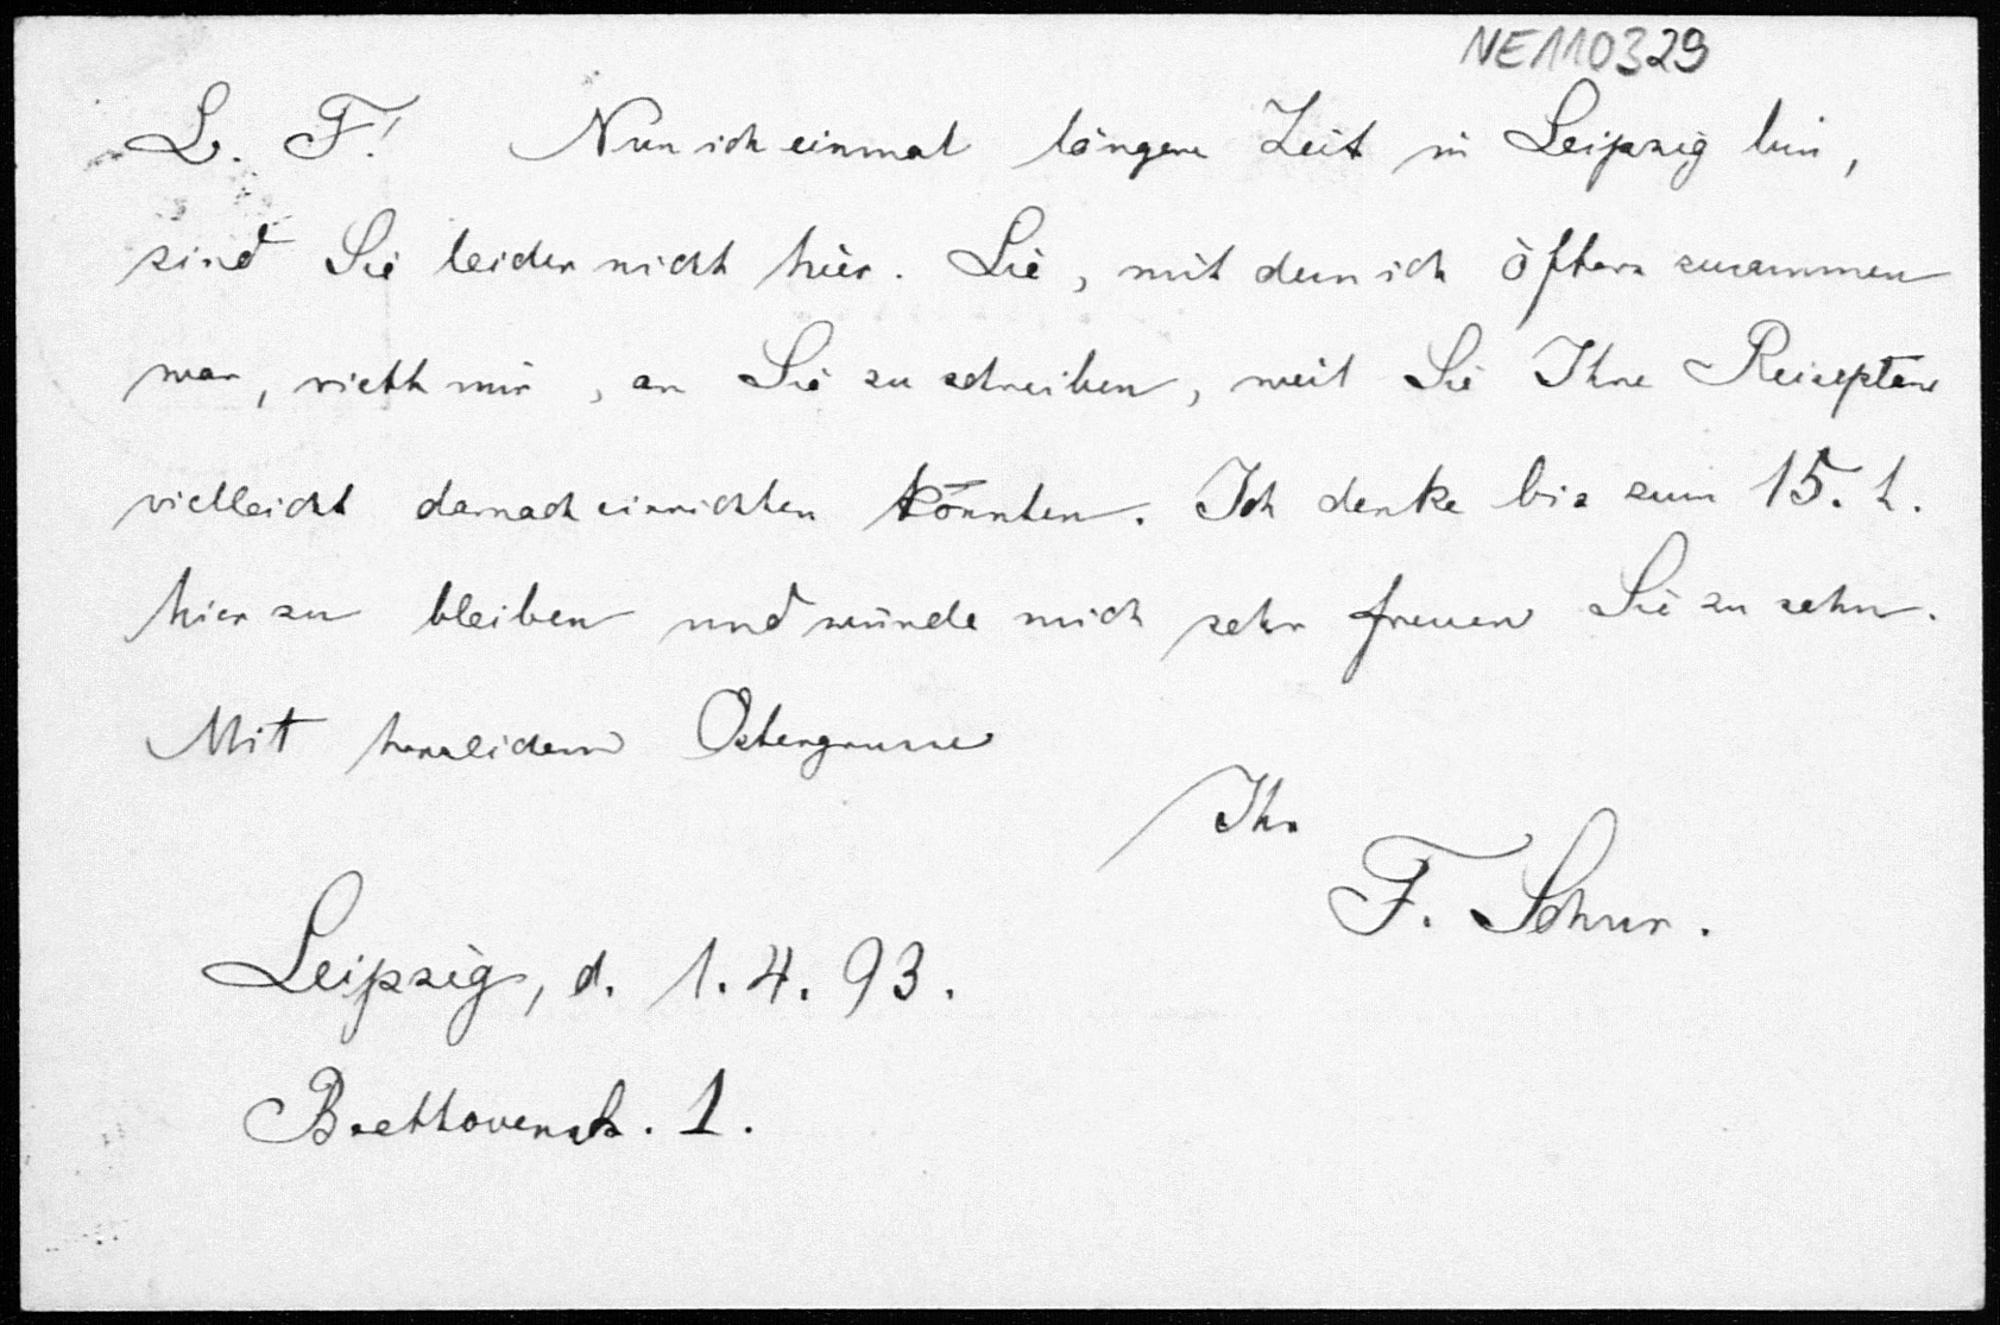 NE110329
L. F.! Nun ich einmal längere Zeit in Leipzig bin,
sind Sie leider nicht hier. Lie, mit dem ich öfters zusammen
war, rieth mir, an Sie zu schreiben, weil Sie Ihre Reisepläne
vielleicht darnach einrichten könnten. Ich denke bis zum 15. h.
hier zu bleiben und würde mich sehr freuen Sie zu sehn.
Mit herzlichem Ostergrusse
Ihr
F. Schur.
Leipzig, d. 1. 4. 93.
Beethovenstr. 1.